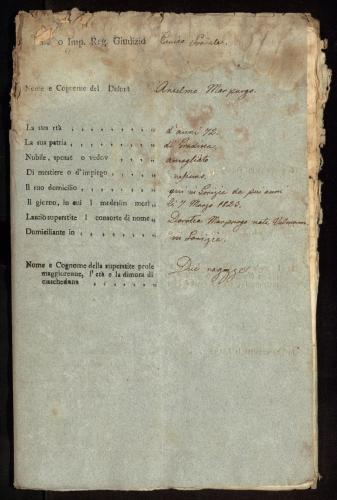 o Imp. Reg. Giudizio Civico Prov.le
Nome e Cognome del Defunt Anselmo Marpurgo.
La sua età d'anni 72.
La sua patria di Gradisca
Nubile, sposat o vedov ammogliato
Di mestiere o d'impiego
Il suo domicilio qui in Gorizia da più anni
Il giorno, in cui l medesim morì li 7 Marzo 1823.
Lasciò superstite l consorte di nome Dorotea Marpurgo nata
Domiciliante in in Gorizia.
Nome e Cognome della superstite prole
maggiorenne, l'età e la dimora di
ciaschedana Due ragazze